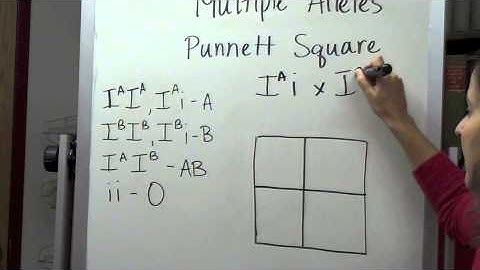 Multiple Alleles
Punnett Square
I^A i x I
I^A I^A, I^A i - A
I^B I^B, I^B i - B
I^A I^B - AB
ii - O